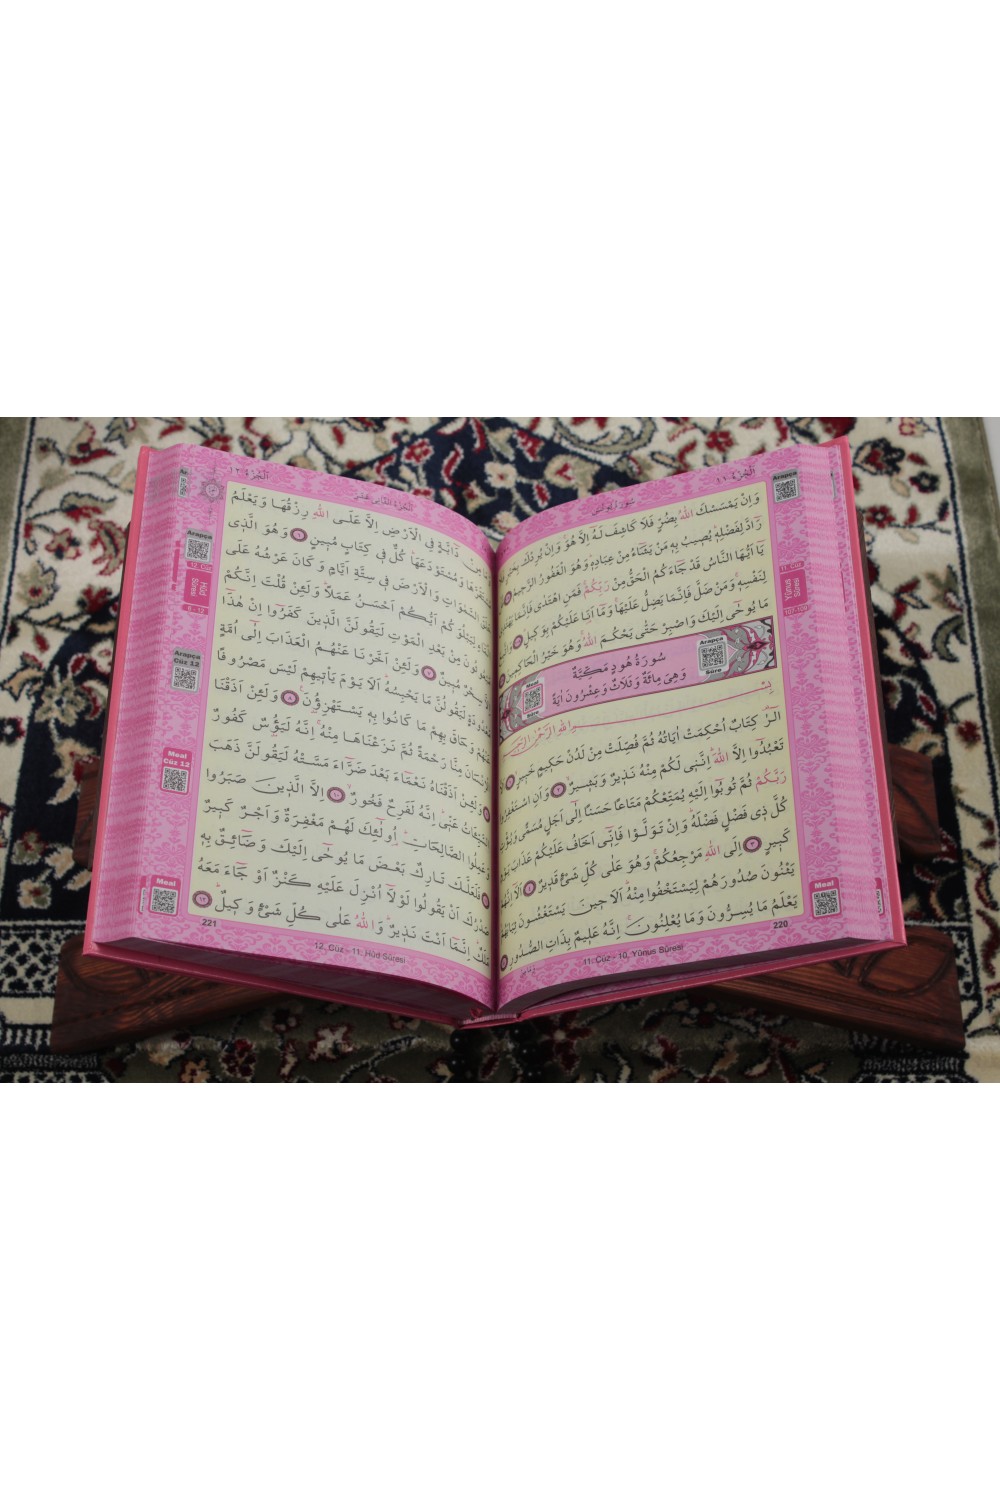 الجزء ١١
سورة يونس
وَاِنْ يَمْسَسْكَ اللّٰهُ بِضُرٍّ فَلَا كَاشِفَ لَهُٓ اِلَّا هُوَ وَاِنْ يُرِدْكَ بِخَيْرٍ فَلَا
رَٓادَّ لِفَضْلِه۪ يُص۪يبُ بِه۪ مَنْ يَشَٓاءُ مِنْ عِبَادِه۪ وَهُوَ الْغَفُورُ الرَّح۪يمُ
يَٓا اَيُّهَا النَّاسُ قَدْ جَٓاءَكُمُ الْحَقُّ مِنْ رَبِّكُمْ فَمَنِ اهْتَدٰى فَاِنَّمَا يَهْتَد۪ي
لِنَفْسِه۪ وَمَنْ ضَلَّ فَاِنَّمَا يَضِلُّ عَلَيْهَا وَمَٓا اَنَا۬ عَلَيْكُمْ بِوَك۪يلٍ
مَا يُوحٰٓى اِلَيْكَ وَاصْبِرْ حَتّٰى يَحْكُمَ اللّٰهُ وَهُوَ خَيْرُ الْحَاكِم۪ينَ
سُورَةُ هُودٍ مَكِّيَّةٌ
وَهِيَ مِائَةٌ وَثَلَاثٌ وَعِشْرُونَ اٰيَةً
Arapça
Sûre
Meal
Sûre
بِسْمِ اللّٰهِ الرَّحْمٰنِ الرَّح۪يمِ
الٓرٰ كِتَابٌ اُحْكِمَتْ اٰيَاتُهُ ثُمَّ فُصِّلَتْ مِنْ لَدُنْ حَك۪يمٍ خَب۪يرٍ ١
تَعْبُدُٓوا اِلَّا اللّٰهَ اِنَّن۪ي لَكُمْ مِنْهُ نَذ۪يرٌ وَبَش۪يرٌ ٢ وَاَنِ اسْتَغْفِرُوا
رَبَّكُمْ ثُمَّ تُوبُٓوا اِلَيْهِ يُمَتِّعْكُمْ مَتَاعًا حَسَنًا اِلٰٓى اَجَلٍ مُسَمًّى وَيُؤْتِ
كُلَّ ذ۪ي فَضْلٍ فَضْلَهُ وَاِنْ تَوَلَّوْا فَاِنّ۪ٓي اَخَافُ عَلَيْكُمْ عَذَابَ يَوْمٍ
كَب۪يرٍ ٣ اِلَى اللّٰهِ مَرْجِعُكُمْ وَهُوَ عَلٰى كُلِّ شَيْءٍ قَد۪يرٌ ٤ اَلَٓا اِنَّهُمْ
يَثْنُونَ صُدُورَهُمْ لِيَسْتَخْفُوا مِنْهُ اَلَا ح۪ينَ يَسْتَغْشُونَ ثِيَابَهُمْ
يَعْلَمُ مَا يُسِرُّونَ وَمَا يُعْلِنُونَ اِنَّهُ عَل۪يمٌ بِذَاتِ الصُّدُورِ ٥
220
11. Cüz - 10, Yûnus Sûresi
Arapça
11. Cüz
Yûnus
Sûresi
107-109
Meal
الجزء ١٢
الجزء الثاني عشر
دَٓابَّةٍ فِي الْاَرْضِ اِلَّا عَلَى اللّٰهِ رِزْقُهَا وَيَعْلَمُ
مُسْتَقَرَّهَا وَمُسْتَوْدَعَهَا كُلٌّ ف۪ي كِتَابٍ مُب۪ينٍ ٦ وَهُوَ الَّذ۪ي
السَّمٰوَاتِ وَالْاَرْضَ ف۪ي سِتَّةِ اَيَّامٍ وَكَانَ عَرْشُهُ عَلَى
الْمَٓاءِ لِيَبْلُوَكُمْ اَيُّكُمْ اَحْسَنُ عَمَلًا وَلَئِنْ قُلْتَ اِنَّكُمْ
مَبْعُوثُونَ مِنْ بَعْدِ الْمَوْتِ لَيَقُولَنَّ الَّذ۪ينَ كَفَرُٓوا اِنْ هٰذَٓا
سِحْرٌ مُب۪ينٌ ٧ وَلَئِنْ اَخَّرْنَا عَنْهُمُ الْعَذَابَ اِلٰٓى اُمَّةٍ
مَعْدُودَةٍ لَيَقُولُنَّ مَا يَحْبِسُهُ اَلَا يَوْمَ يَأْت۪يهِمْ لَيْسَ مَصْرُوفًا
عَنْهُمْ وَحَاقَ بِهِمْ مَا كَانُوا بِه۪ يَسْتَهْزِؤُ۫نَ ٨ وَلَئِنْ اَذَقْنَا
الْاِنْسَانَ مِنَّا رَحْمَةً ثُمَّ نَزَعْنَاهَا مِنْهُ اِنَّهُ لَيَؤُ۫سٌ كَفُورٌ
وَلَئِنْ اَذَقْنَاهُ نَعْمَٓاءَ بَعْدَ ضَرَّٓاءَ مَسَّتْهُ لَيَقُولَنَّ ذَهَبَ
السَّيِّـَٔاتُ عَنّ۪ي اِنَّهُ لَفَرِحٌ فَخُورٌ ١٠ اِلَّا الَّذ۪ينَ صَبَرُوا
وَعَمِلُوا الصَّالِحَاتِ اُو۬لٰٓئِكَ لَهُمْ مَغْفِرَةٌ وَاَجْرٌ كَب۪يرٌ
فَلَعَلَّكَ تَارِكٌ بَعْضَ مَا يُوحٰٓى اِلَيْكَ وَضَٓائِقٌ بِه۪
صَدْرُكَ اَنْ يَقُولُوا لَوْلَٓا اُنْزِلَ عَلَيْهِ كَنْزٌ اَوْ جَٓاءَ مَعَهُ
مَلَكٌ اِنَّمَٓا اَنْتَ نَذ۪يرٌ وَاللّٰهُ عَلٰى كُلِّ شَيْءٍ وَك۪يلٌ ١٢
221
12. Cüz - 11, Hûd Sûresi
Arapça
12. Cüz
Hûd
Sûresi
6 - 12
Arapça
Cüz 12
Meal
Cüz 12
Meal